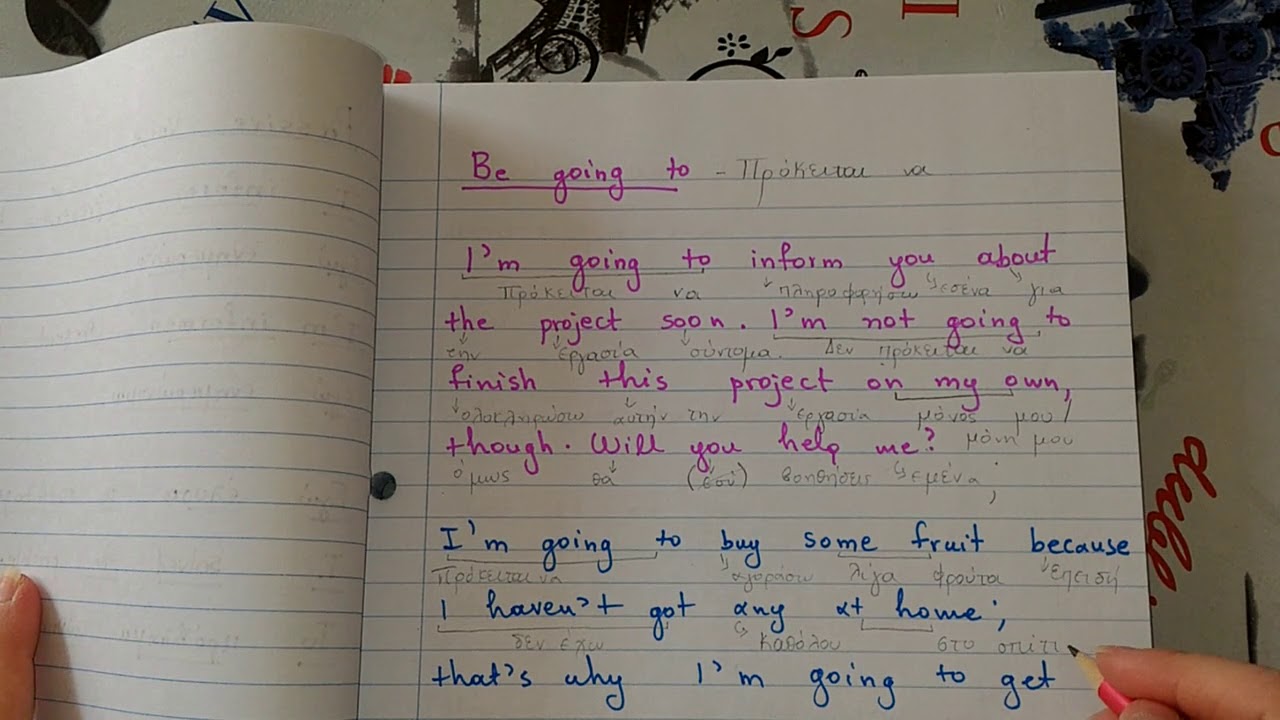 Be going to - Πρόκειται να
I'm going to inform you about
Πρόκειται να πληροφορήσω εσένα για
the project soon. I'm not going to
την εργασία σύντομα. Δεν πρόκειται να
finish this project on my own,
ολοκληρώσω αυτήν την εργασία μόνος μου/
though. Will you help me? μόνη μου
όμως θα (εσύ) βοηθήσεις εμένα;
I'm going to buy some fruit because
Πρόκειται να αγοράσω λίγα φρούτα επειδή
I haven't got any at home;
δεν έχω καθόλου στο σπίτι
that's why I'm going to get